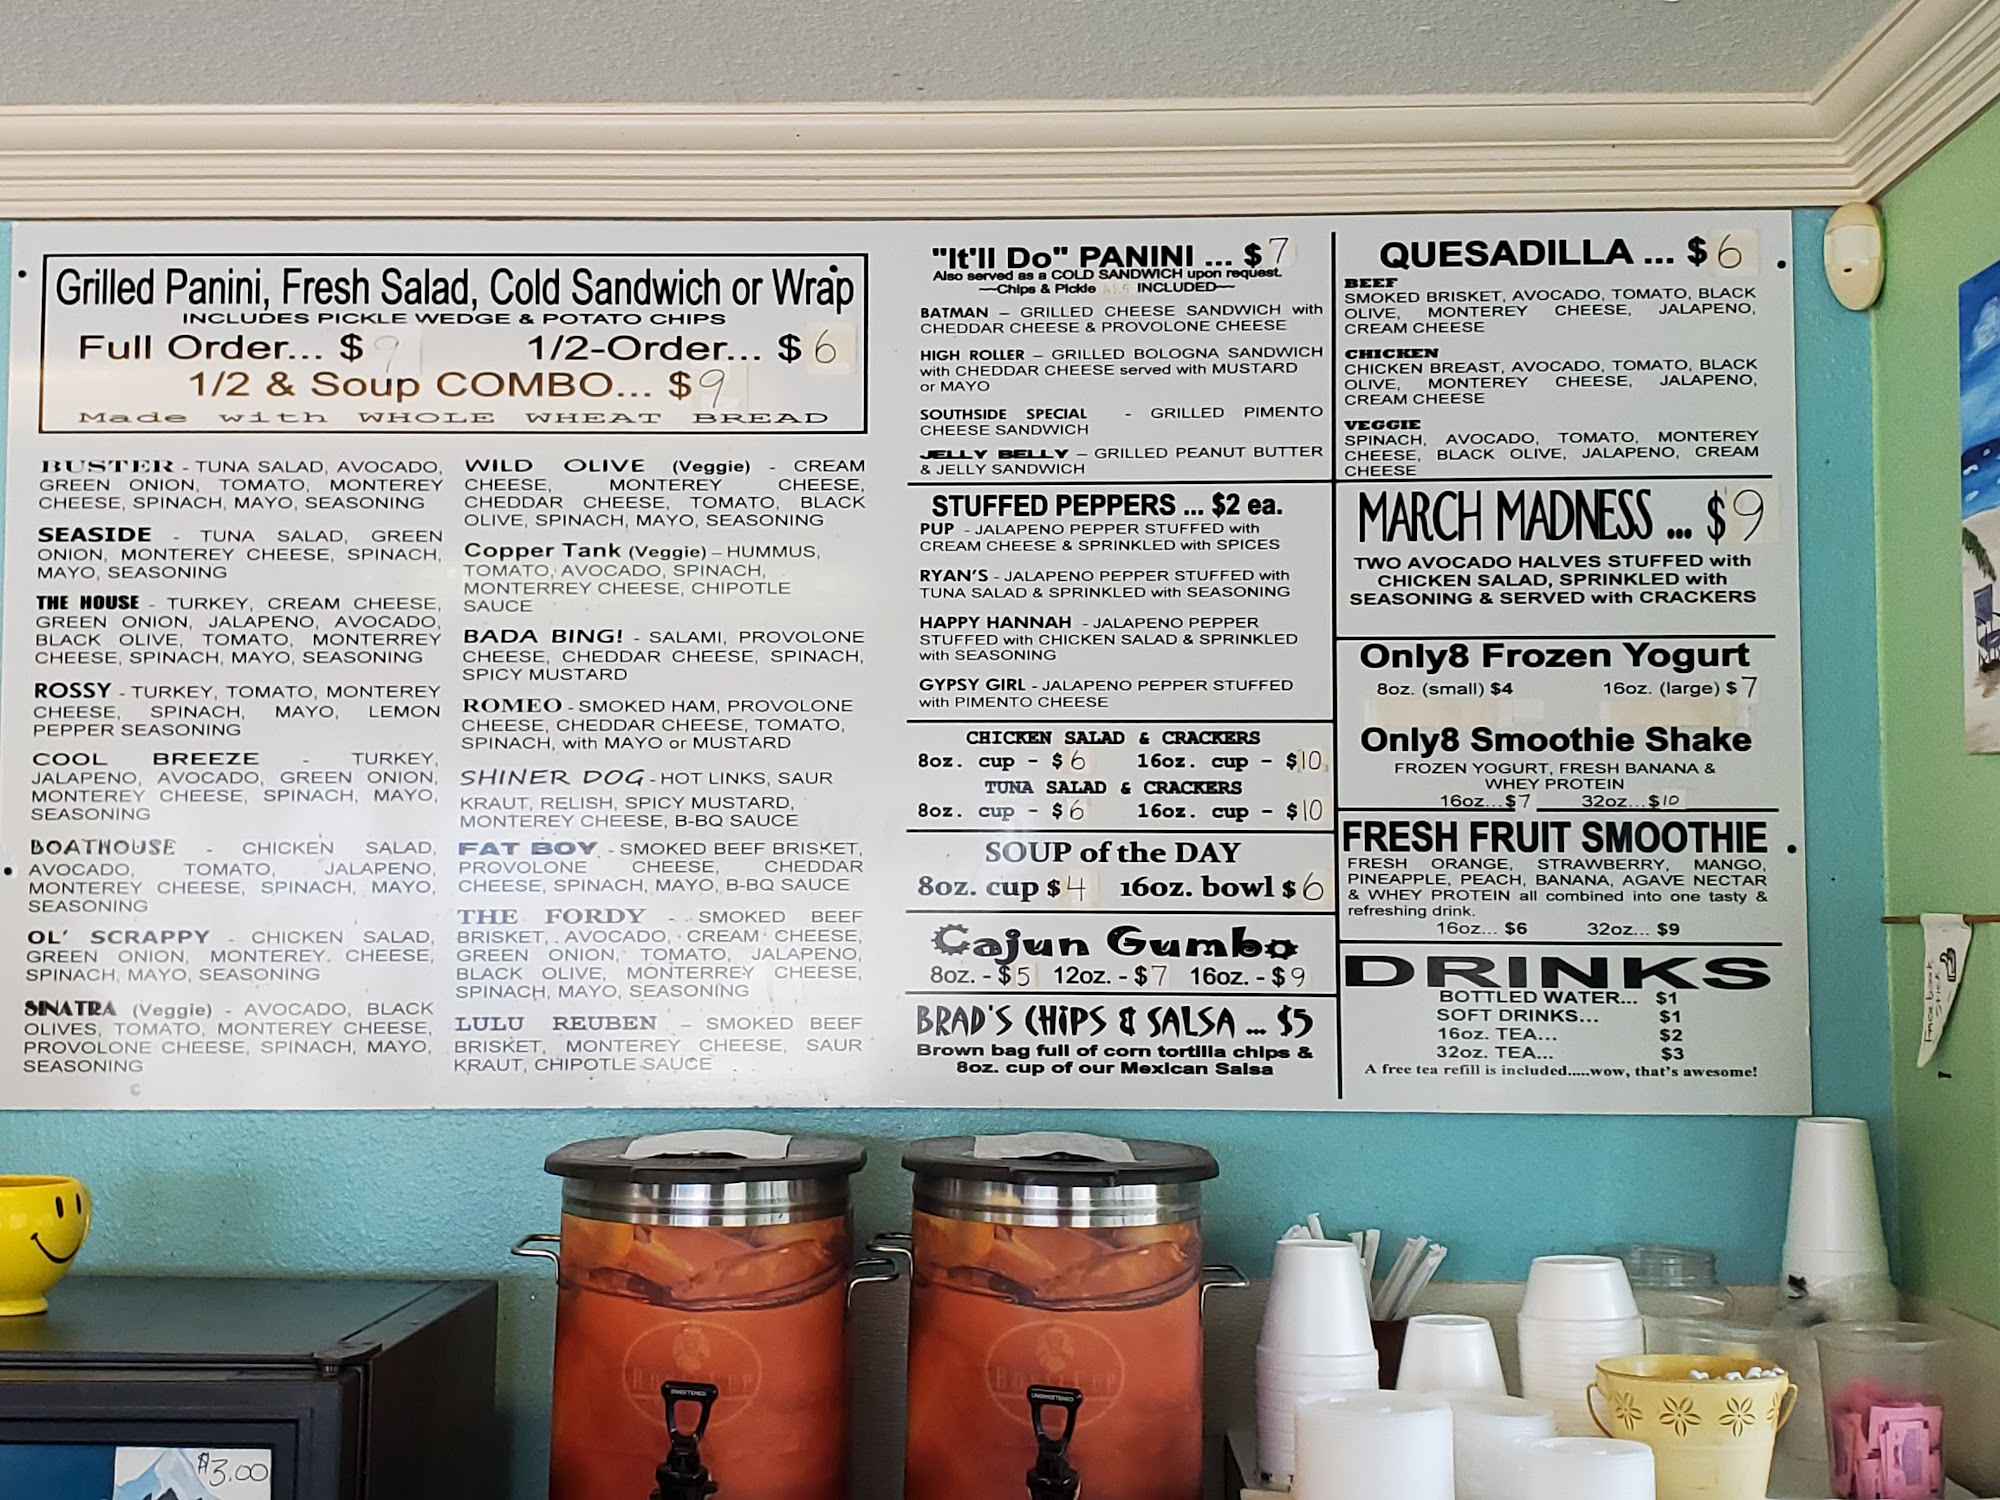 Grilled Panini, Fresh Salad, Cold Sandwich or Wrap
INCLUDES PICKLE WEDGE & POTATO CHIPS
Full Order... $9 1/2-Order... $6
1/2 & Soup COMBO... $9
Made with WHOLE WHEAT BREAD
BUSTER - TUNA SALAD, AVOCADO,
GREEN ONION, TOMATO, MONTEREY
CHEESE, SPINACH, MAYO, SEASONING
SEASIDE - TUNA SALAD, GREEN
ONION, MONTEREY CHEESE, SPINACH,
MAYO, SEASONING
THE HOUSE - TURKEY, CREAM CHEESE,
GREEN ONION, JALAPENO, AVOCADO,
BLACK OLIVE, TOMATO, MONTERREY
CHEESE, SPINACH, MAYO, SEASONING
ROSSY - TURKEY, TOMATO, MONTEREY
CHEESE, SPINACH, MAYO, LEMON
PEPPER SEASONING
COOL BREEZE - TURKEY,
JALAPENO, AVOCADO, GREEN ONION,
MONTEREY CHEESE, SPINACH, MAYO,
SEASONING
BOATHOUSE - CHICKEN SALAD,
AVOCADO, TOMATO, JALAPENO,
MONTEREY CHEESE, SPINACH, MAYO,
SEASONING
OL' SCRAPPY - CHICKEN SALAD,
GREEN ONION, MONTEREY CHEESE,
SPINACH, MAYO, SEASONING
SINATRA (Veggie) - AVOCADO, BLACK
OLIVES, TOMATO, MONTEREY CHEESE,
PROVOLONE CHEESE, SPINACH, MAYO,
SEASONING
©
WILD OLIVE (Veggie) - CREAM
CHEESE, MONTEREY CHEESE,
CHEDDAR CHEESE, TOMATO, BLACK
OLIVE, SPINACH, MAYO, SEASONING
Copper Tank (Veggie) – HUMMUS,
TOMATO, AVOCADO, SPINACH,
MONTERREY CHEESE, CHIPOTLE
SAUCE
BADA BING! - SALAMI, PROVOLONE
CHEESE, CHEDDAR CHEESE, SPINACH,
SPICY MUSTARD
ROMEO - SMOKED HAM, PROVOLONE
CHEESE, CHEDDAR CHEESE, TOMATO,
SPINACH, with MAYO or MUSTARD
SHINER DOG - HOT LINKS, SAUR
KRAUT, RELISH, SPICY MUSTARD,
MONTEREY CHEESE, B-BQ SAUCE
FAT BOY - SMOKED BEEF BRISKET,
PROVOLONE CHEESE, CHEDDAR
CHEESE, SPINACH, MAYO, B-BQ SAUCE
THE FORDY - SMOKED BEEF
BRISKET, AVOCADO, CREAM CHEESE,
GREEN ONION, TOMATO, JALAPENO,
BLACK OLIVE, MONTERREY CHEESE,
SPINACH, MAYO, SEASONING
LULU REUBEN – SMOKED BEEF
BRISKET, MONTEREY CHEESE, SAUR
KRAUT, CHIPOTLE SAUCE
"It'll Do" PANINI ... $7
Also served as a COLD SANDWICH upon request.
~~Chips & Pickle ARE INCLUDED~~
BATMAN – GRILLED CHEESE SANDWICH with
CHEDDAR CHEESE & PROVOLONE CHEESE
HIGH ROLLER – GRILLED BOLOGNA SANDWICH
with CHEDDAR CHEESE served with MUSTARD
or MAYO
SOUTHSIDE SPECIAL - GRILLED PIMENTO
CHEESE SANDWICH
JELLY BELLY – GRILLED PEANUT BUTTER
& JELLY SANDWICH
STUFFED PEPPERS ... $2 ea.
PUP - JALAPENO PEPPER STUFFED with
CREAM CHEESE & SPRINKLED with SPICES
RYAN'S - JALAPENO PEPPER STUFFED with
TUNA SALAD & SPRINKLED with SEASONING
HAPPY HANNAH - JALAPENO PEPPER
STUFFED with CHICKEN SALAD & SPRINKLED
with SEASONING
GYPSY GIRL - JALAPENO PEPPER STUFFED
with PIMENTO CHEESE
CHICKEN SALAD & CRACKERS
8oz. cup - $6 16oz. cup - $10
TUNA SALAD & CRACKERS
8oz. cup - $6 16oz. cup - $10
SOUP of the DAY
8oz. cup $4 16oz. bowl $6
Cajun Gumbo
8oz. - $5 12oz. - $7 16oz. - $9
BRAD'S CHIPS & SALSA ... $5
Brown bag full of corn tortilla chips &
8oz. cup of our Mexican Salsa
QUESADILLA ... $6
BEEF
SMOKED BRISKET, AVOCADO, TOMATO, BLACK
OLIVE, MONTEREY CHEESE, JALAPENO,
CREAM CHEESE
CHICKEN
CHICKEN BREAST, AVOCADO, TOMATO, BLACK
OLIVE, MONTEREY CHEESE, JALAPENO,
CREAM CHEESE
VEGGIE
SPINACH, AVOCADO, TOMATO, MONTEREY
CHEESE, BLACK OLIVE, JALAPENO, CREAM
CHEESE
MARCH MADNESS ... $9
TWO AVOCADO HALVES STUFFED with
CHICKEN SALAD, SPRINKLED with
SEASONING & SERVED with CRACKERS
Only8 Frozen Yogurt
8oz. (small) $4 16oz. (large) $7
Only8 Smoothie Shake
FROZEN YOGURT, FRESH BANANA &
WHEY PROTEIN
16oz...$7 32oz...$10
FRESH FRUIT SMOOTHIE
FRESH ORANGE, STRAWBERRY, MANGO,
PINEAPPLE, PEACH, BANANA, AGAVE NECTAR
& WHEY PROTEIN all combined into one tasty &
refreshing drink.
16oz... $6 32oz... $9
DRINKS
BOTTLED WATER... $1
SOFT DRINKS... $1
16oz. TEA... $2
32oz. TEA... $3
A free tea refill is included.....wow, that's awesome!
SWEETENED
UNSWEETENED
$3.00